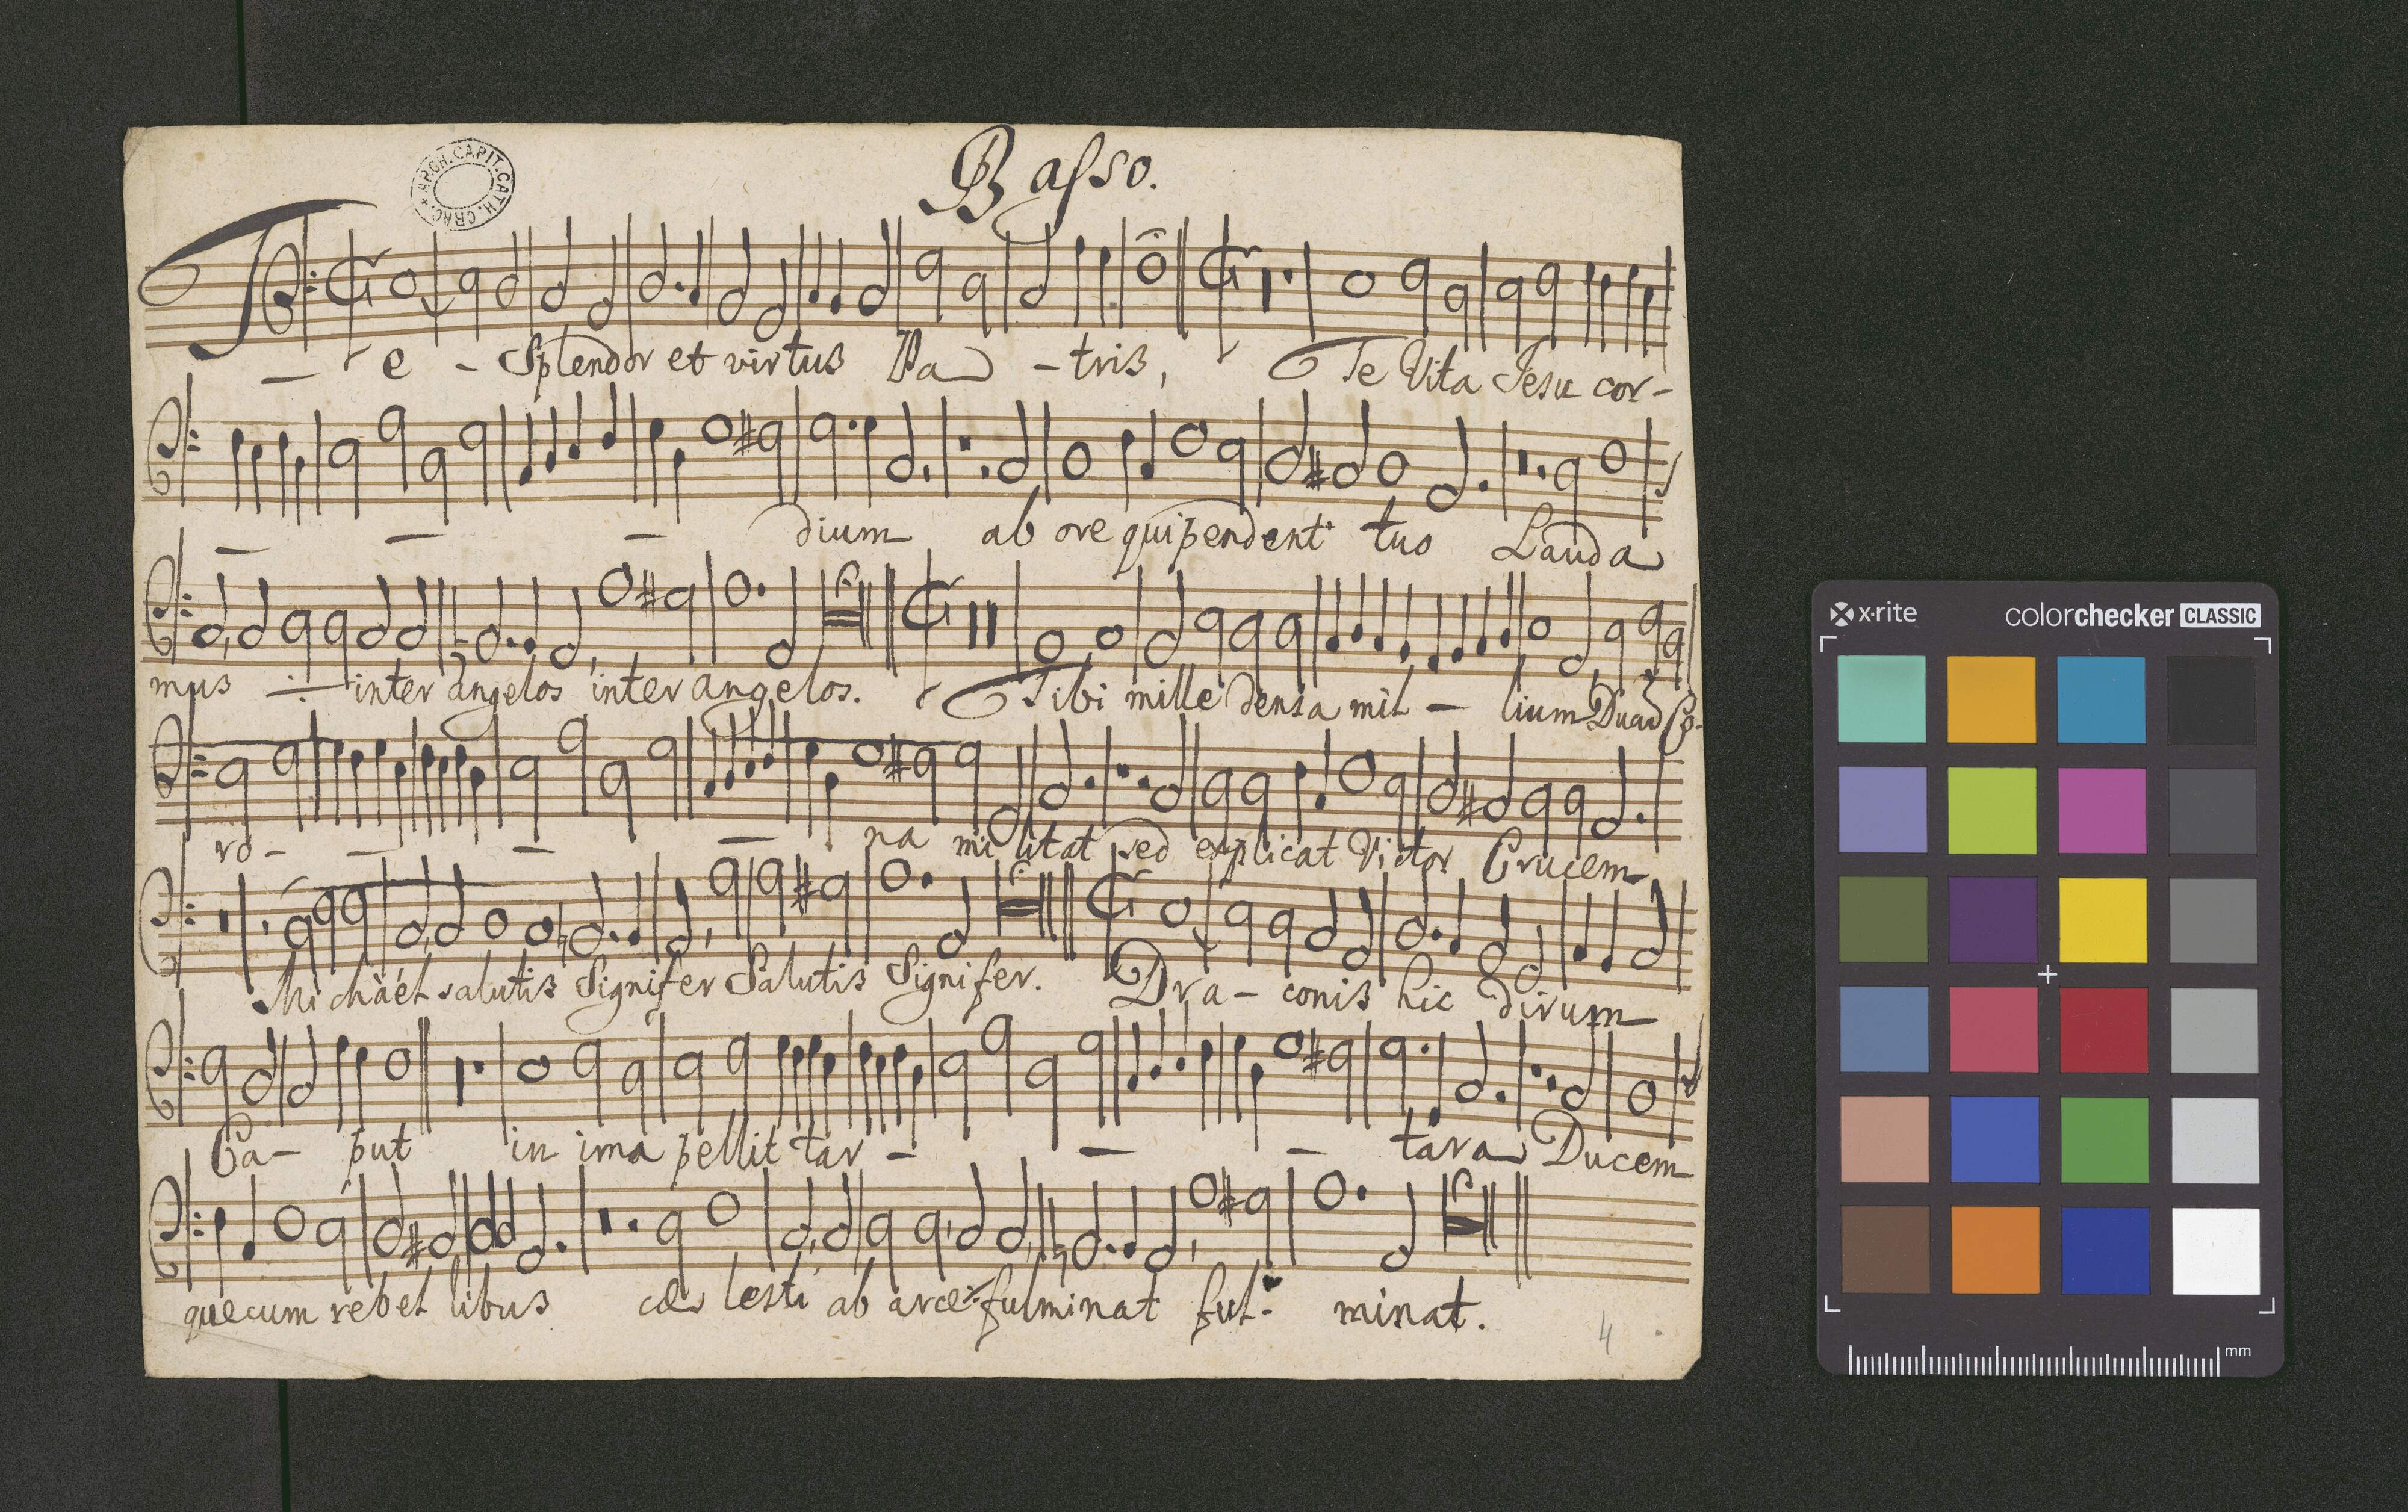 Basso.
ARCH. CAPIT. CATH. CRAC.
Te - Splendor et virtus Pa - tris, Te Vita Jesu cor-
- - - dium ab ore qui pendent tuo Lauda
mus -:- inter angelos inter angelos. Tibi mille densa mil - lium Ducu Co-
ro - - - - na militat sed explicat Victor Crucem
Michaël salutis Signifer Salutis Signifer. Dra - conis hic dirum
Ca - put in ima pellit tar - - - tara Ducem
quecum rebel libus cæ lesti ab arce fulminat ful - minat.
4
x·rite colorchecker CLASSIC
mm